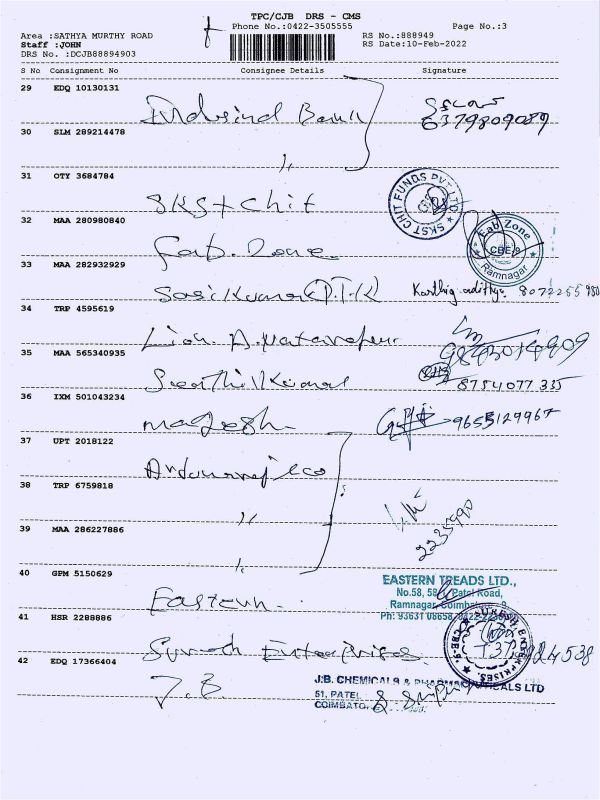 TPC/CJB DRS - CMS
Phone No.:0422-3505555
Page No.:3
Area :SATHYA MURTHY ROAD
Staff :JOHN
DRS No. :DCJB88894903
RS No.:888949
RS Date:10-Feb-2022
S No Consignment No Consignee Details Signature
29 EDQ 10130131
Indusind Bank
6379809089
30 SLM 289214478
"
31 OTY 3684784
SKST Chit
SKST CHIT FUNDS PVT LTD
32 MAA 280980840
Fab. Zone
Fab Zone
CBE-9
Ramnagar
33 MAA 282932929
Sasikumar
Karthig adithya 8072255 980
34 TRP 4595619
Lion. A.
35 MAA 565340935
Senthilkumar
8754077 335
36 IXM 501043234
Magesh
9655129967
37 UPT 2018122
38 TRP 6759818
"
39 MAA 286227886
"
2235990
40 GPM 5150629
Eastern
EASTERN TREADS LTD.,
No.58, Patel Road,
Ramnagar, Coimbatore - 9
Ph: 93631 08658,
41 HSR 2288886
Suresh Enterprises
SURESH ENTERPRISES
CBE-9
42 EDQ 17366404
J.B
J.B. CHEMICALS & PHARMACEUTICALS LTD
51, PATEL
COIMBATO